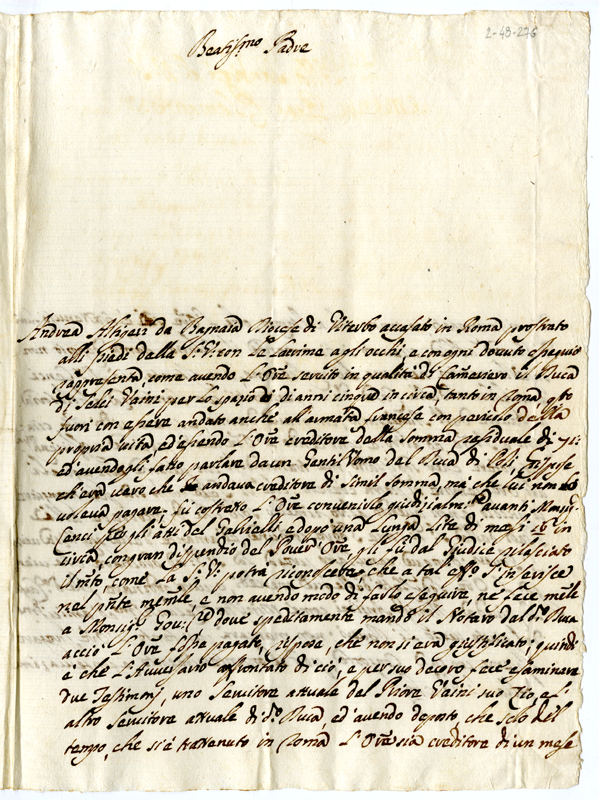 2-48-276
Beatis.mo Padre
Andrea Altigeri da Bagnara Diocese di Viterbo accasato in Roma prostrato
alli piedi della S. V. con le lacrime agli occhi, e con ogni dovuto ossequio
rappresenta, come avendo l'Ore servito in qualità di Cameriero il Duca
di Selci Vaini per lo spazio di anni cinque in circa, tanto in Roma qto
fuori con essere andato anche all'armata franzese con pericolo della
propria vita, ed'essendo l'Ore creditore della somma residuale di
ed avendogli fatto parlare da un Gentil'Uomo dal Duca di rispose
ch'era vero che andava creditore di simil somma, ma che lui non
voleva pagare. fù costretto l'Ore convenirlo giudizialm.te avanti Monsig.r
Cenci per gli atti del Gabrielli e doppo una lunga lite di mesi in
circa, con gran dispendio del Pover'Ore, gli fù dal Giudice rilasciato
il mto, come la S. V. potrà riconoscere, che a tal effo s'inserisce
nel pnte memle, e non avendo modo di farlo eseguire, ne fece mle
a Monsig.r Gov.re dove speditamente mandò il Notaro dal d.o Duca
acciò l'Ore fosse pagato, rispose, che non si era giustificato; quindi
è che l'Avversario affrontato di ciò, e per suo decoro fece esaminare
due Testimonj, uno Servitore attuale del Priore Vaini suo Zio, e l'
altro Servitore attuale di d.o Duca, ed'avendo deposto, che solo del
tempo, che si è trattenuto in Roma l'Ore sia creditore di un mese